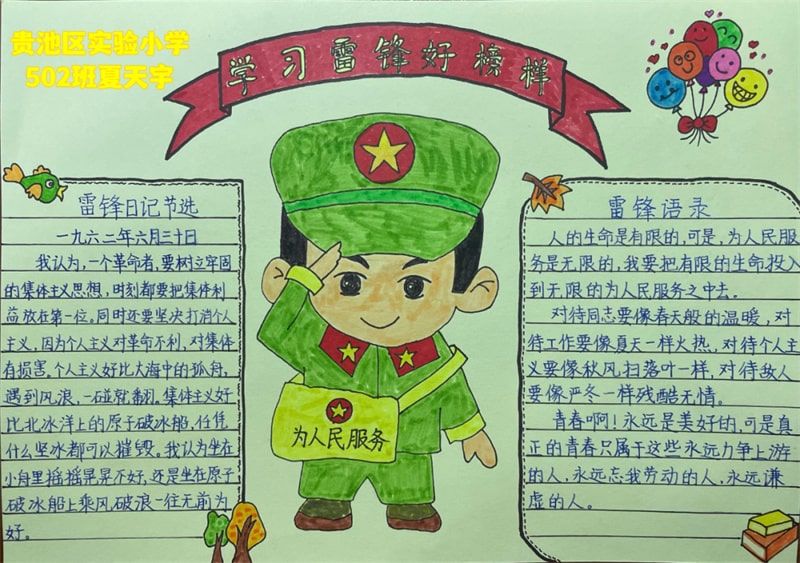 贵池区实验小学
502班夏天宇
学习雷锋好榜样
雷锋日记节选
一九六二年六月三十日
我认为,一个革命者,要树立牢固
的集体主义思想,时刻都要把集体利
益放在第一位。同时还要坚决打消个人
主义,因为个人主义对革命不利,对集体
有损害。个人主义好比大海中的孤舟,
遇到风浪,一碰就翻。集体主义好
比北冰洋上的原子破冰船,任凭
什么坚冰都可以摧毁。我认为坐在
小舟里摇摇晃晃不好,还是坐在原子
破冰船上乘风破浪一往无前为
好。
为人民服务
雷锋语录
人的生命是有限的,可是,为人民服
务是无限的,我要把有限的生命投入
到无限的为人民服务之中去。
对待同志要像春天般的温暖,对
待工作要像夏天一样火热,对待个人主
义要像秋风扫落叶一样,对待敌人
要像严冬一样残酷无情。
青春啊!永远是美好的,可是真
正的青春只属于这些永远力争上游
的人,永远忘我劳动的人,永远谦
虚的人。